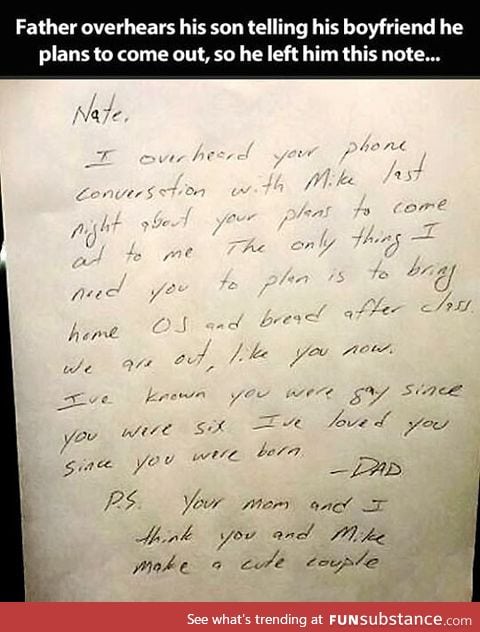 Father overhears his son telling his boyfriend he
plans to come out, so he left him this note...
Nate,
I overheard your phone
conversation with Mike last
night about your plans to come
out to me The only thing I
need you to plan is to bring
home OJ and bread after class.
We are out, like you now.
I've known you were gay since
you were six I've loved you
since you were born.
-DAD
P.S. Your mom and I
think you and Mike
make a cute couple
See what's trending at FUNsubstance.com